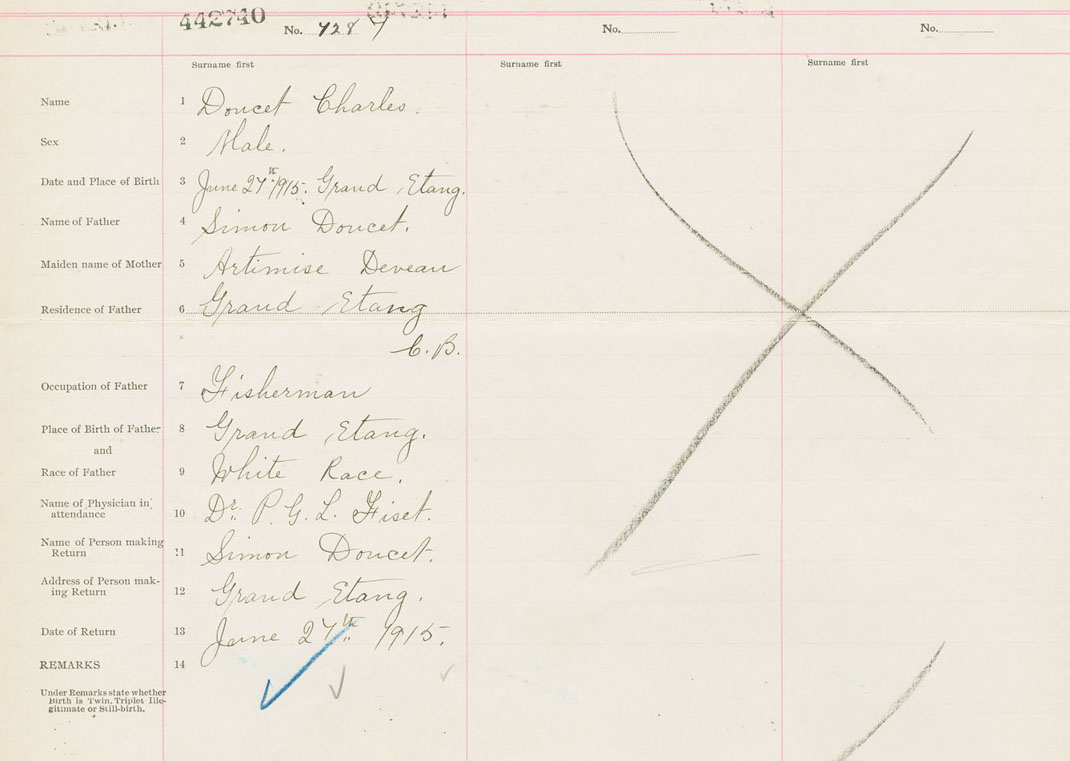 442740
No. 428
No.
No.
Surname first
Surname first
Surname first
Name 1 Doucet Charles.
Sex 2 Male.
Date and Place of Birth 3 June 27th 1915. Grand Etang.
Name of Father 4 Simon Doucet.
Maiden name of Mother 5 Artimise Deveau
Residence of Father 6 Grand Etang
C.B.
Occupation of Father 7 Fisherman
Place of Birth of Father 8 Grand Etang.
and
Race of Father 9 White Race.
Name of Physician in
attendance 10 Dr. P. G. L. Fiset.
Name of Person making
Return 11 Simon Doucet.
Address of Person mak-
ing Return 12 Grand Etang.
Date of Return 13 June 27th 1915.
REMARKS 14
Under Remarks state whether
Birth is Twin, Triplet Ille-
gitimate or Still-birth.